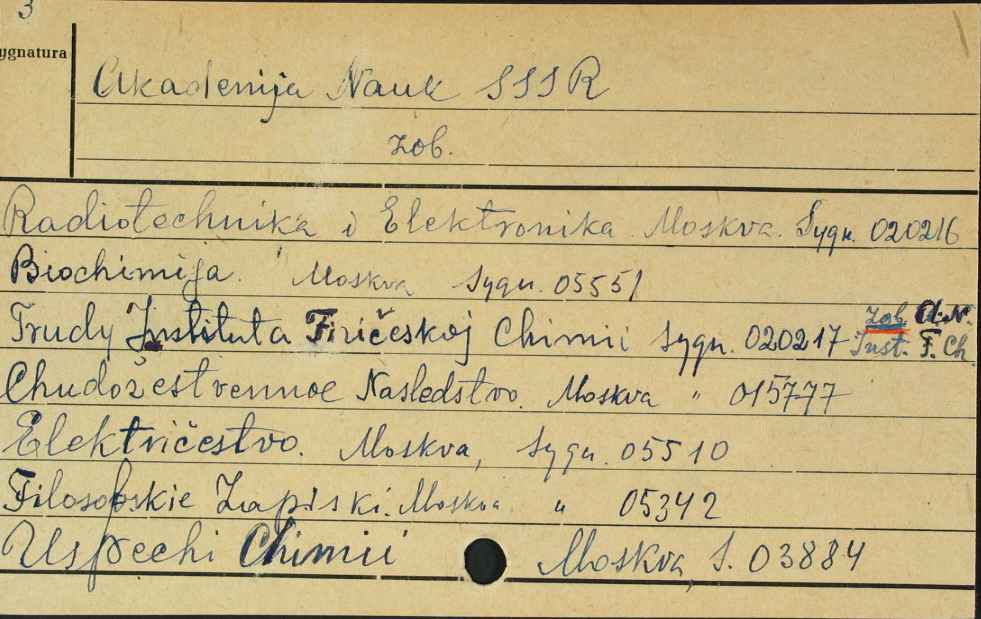 3
ygnatura
Akademija Nauk SSSR
zob.
Radiotechnika i Elektronika. Moskva. Sygn. 020216
Biochimija. Moskva Sygn. 05551
Trudy Instituta Fizičeskoj Chimii Sygn. 020217 Zob. A.N. Inst. F. Ch.
Chudožestvennoe Nasledstvo. Moskva " 015777
Električestvo. Moskva, Sygn. 05510
Filosofskie Zapiski. Moskva " 05342
Uspechi Chimii Moskva, S. 03884